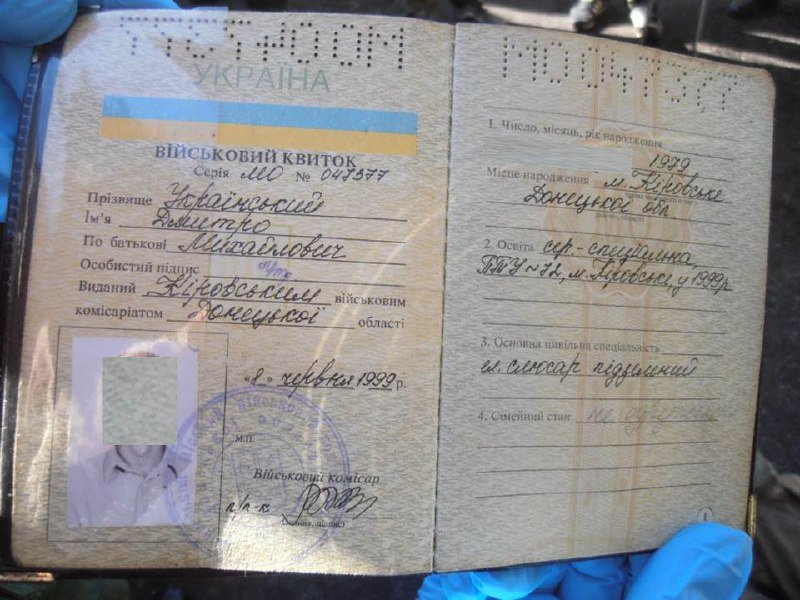 УКРАЇНА
ВІЙСЬКОВИЙ КВИТОК
Серія МО № 047377
Прізвище Український
Ім'я Дмитро
По батькові Михайлович
Особистий підпис
Виданий Кіровським військовим
комісаріатом Донецької області
«8» червня 1999 р.
М.П.
Військовий комісар
п/п-к
(звання, підпис)
МО 047377
1. Число, місяць, рік народження
1979
Місце народження м. Кіровське
Донецької обл
2. Освіта сер.-спеціальна,
ПТУ-72, м. Кіровське, у 1999р
3. Основна цивільна спеціальність
ел. слюсар підземний
4. Сімейний стан не одружений
1